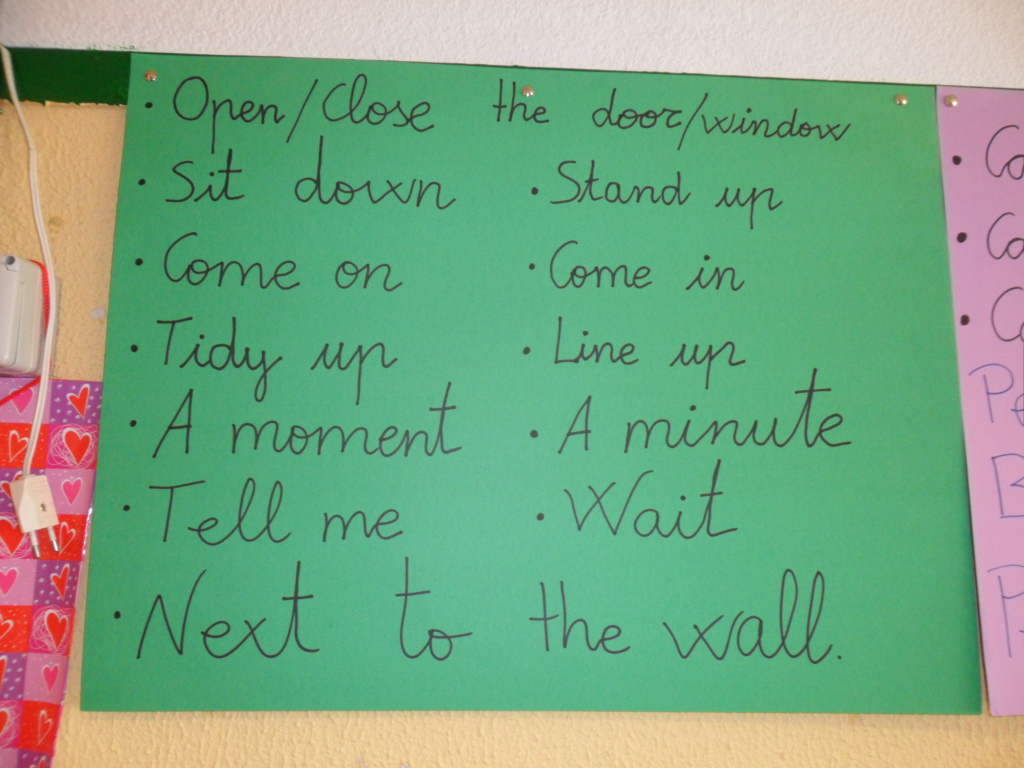 • Open/Close the door/window
• Sit down • Stand up
• Come on • Come in
• Tidy up • Line up
• A moment • A minute
• Tell me • Wait
• Next to the wall.